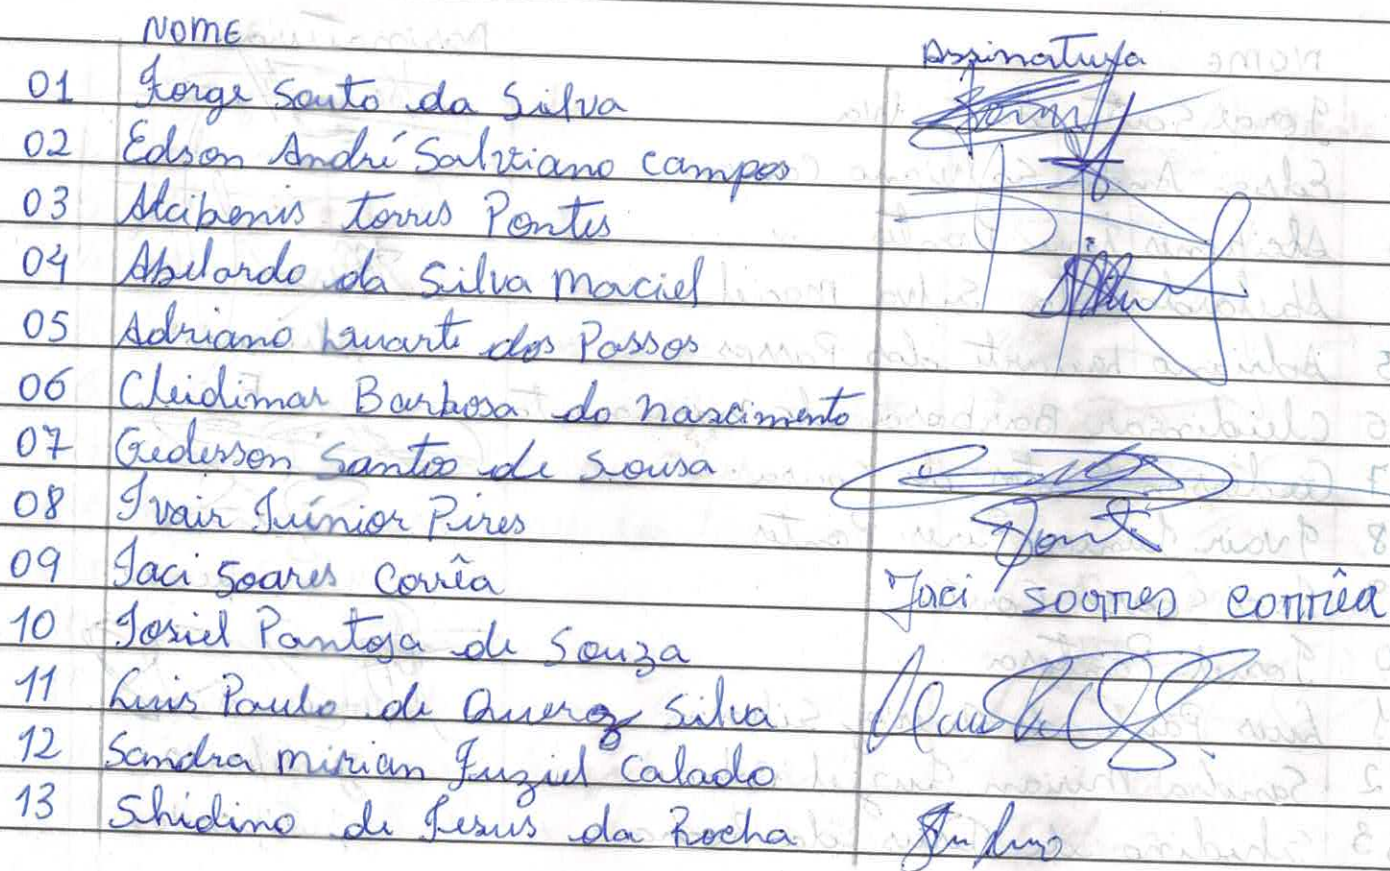 NOME Assinatura
01 Jorge Souto da Silva
02 Edson André Salviano Campos
03 Alcibenis torres Pontes
04 Abelardo da Silva Maciel
05 Adriano Duarte dos Passos
06 Cleidimar Barbosa do nascimento
07 Gederson Santos de Sousa
08 Ivair Júnior Pires
09 Jaci Soares Corrêa Jaci soares corrêa
10 Josiel Pantoja de Souza
11 Luis Paulo de Queroz Silva
12 Sandra Mirian Juziel Calado
13 Shidino de Jesus da Rocha